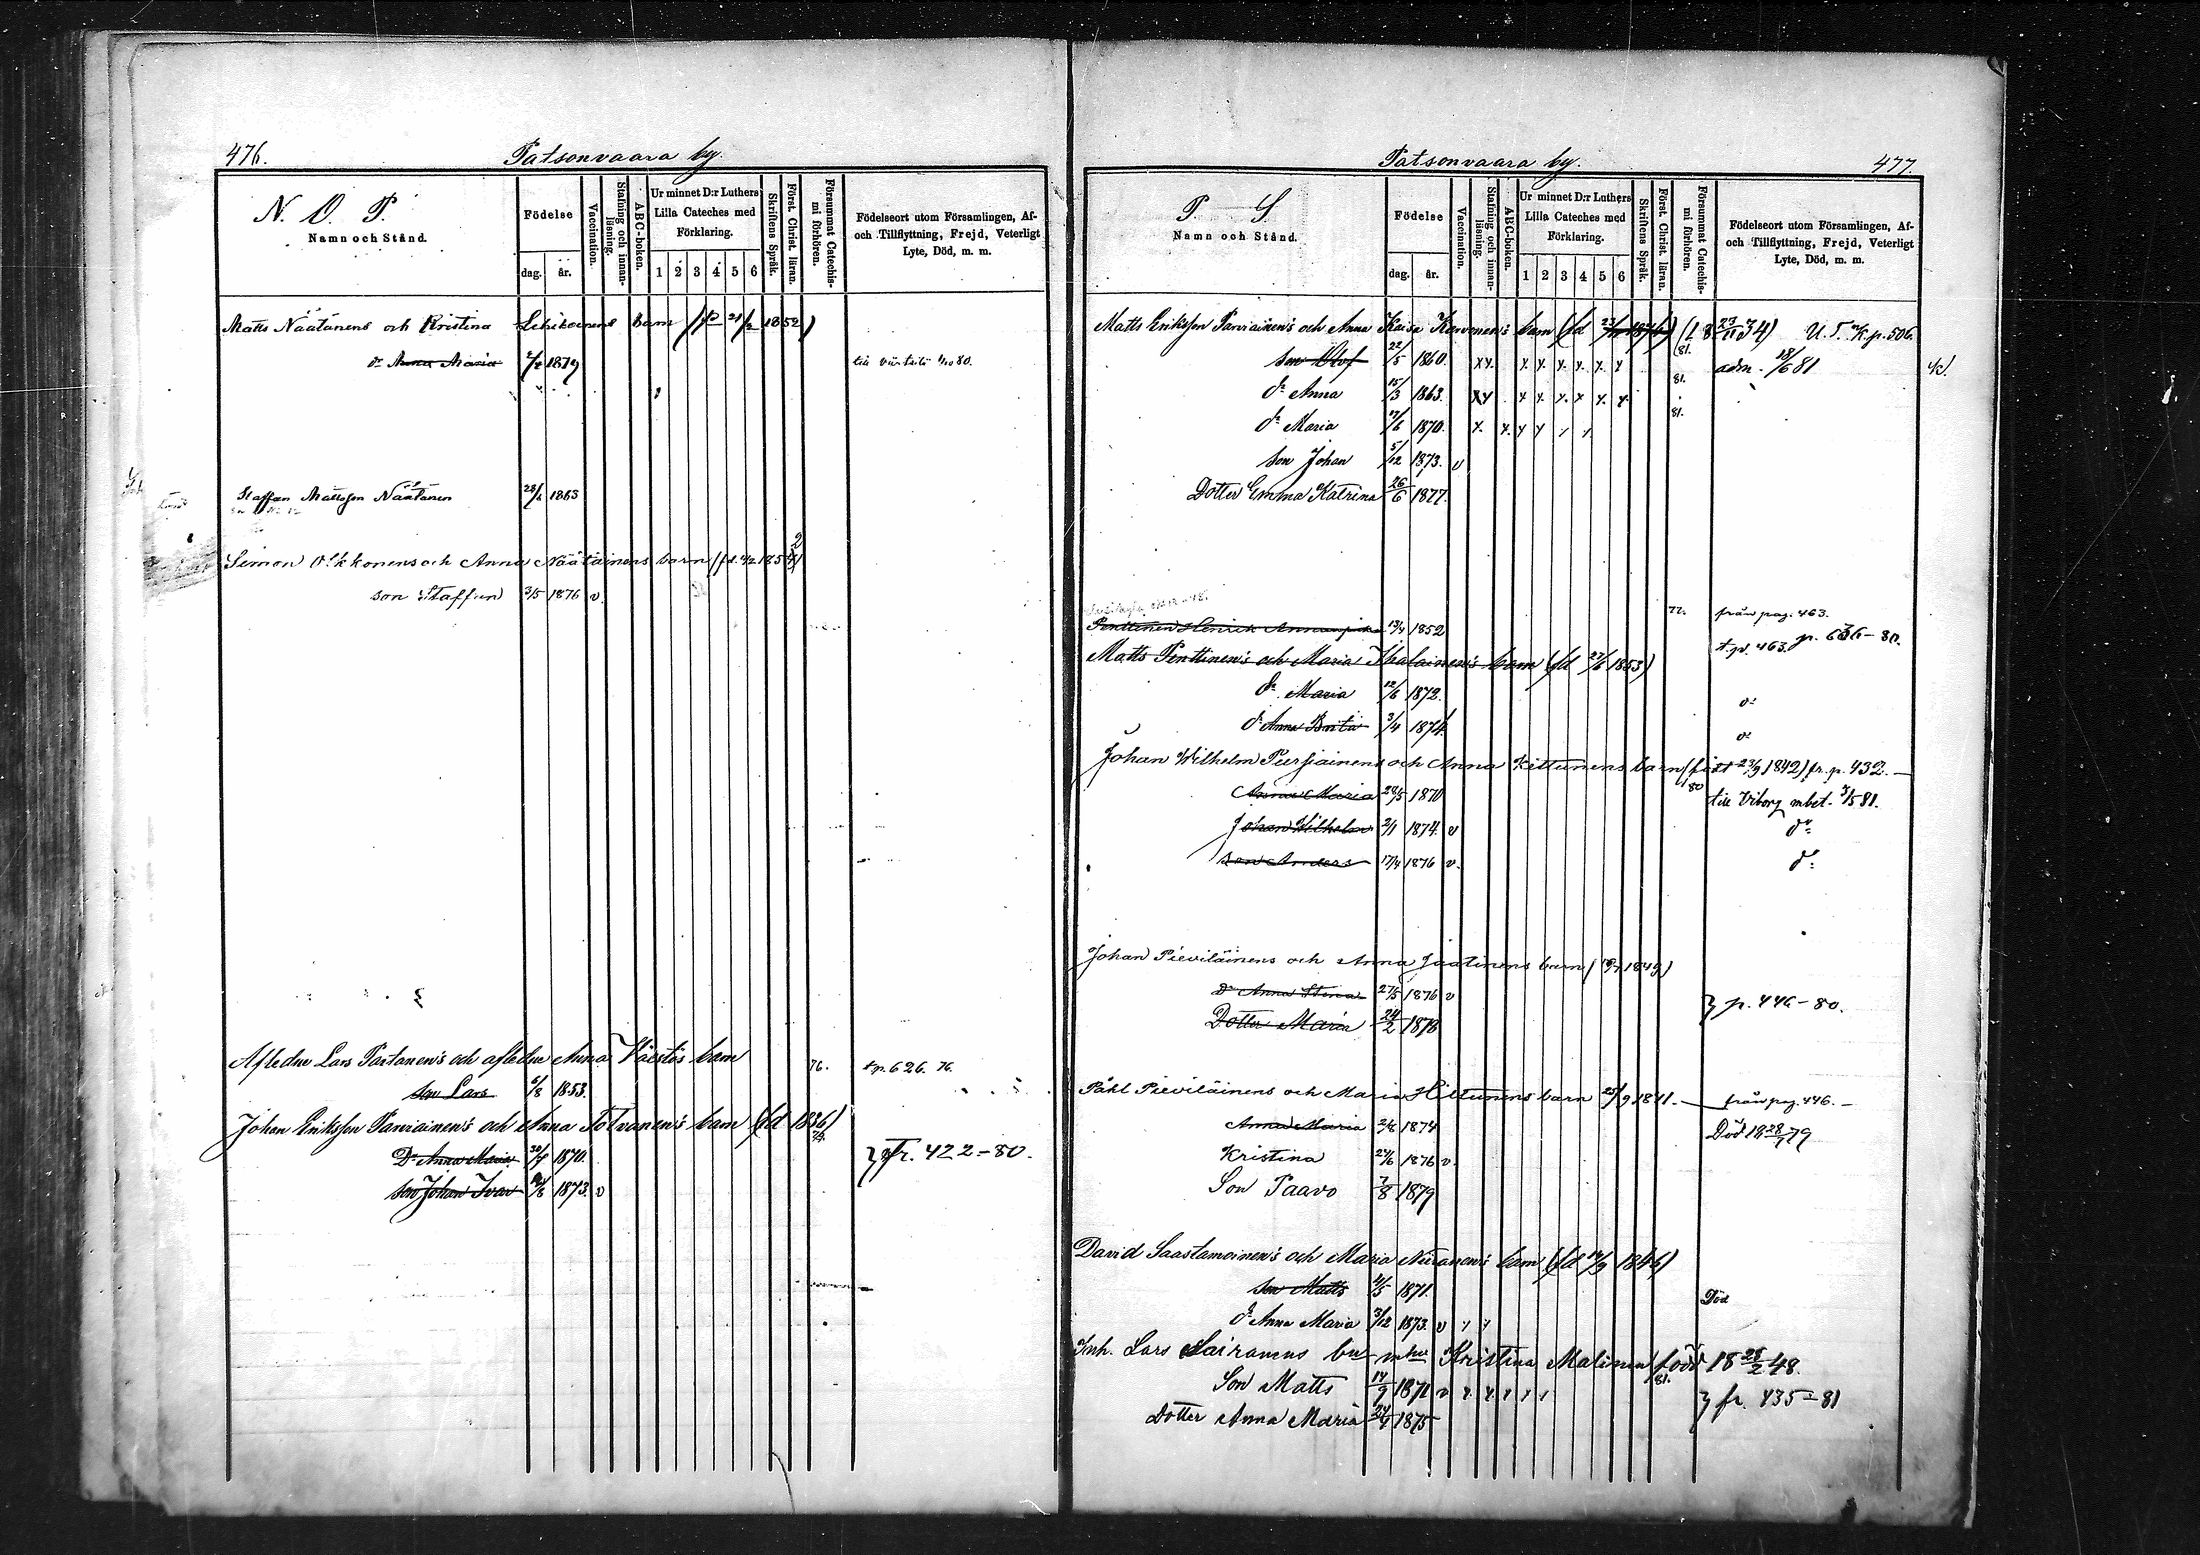 476.
Patsonvaara by.
N. O. P.
Namn och Stånd.
Födelse
dag. år.
Vaccination.
Stafning och innanläsning.
ABC-boken.
Ur minnet D:r Luthers Lilla Cateches med Förklaring.
1 2 3 4 5 6
Skriftens Språk.
Först. Christ. läran.
Försummat Catechismi förhören.
Födelseort utom Församlingen, Af- och Tillflyttning, Frejd, Veterligt Lyte, Död, m. m.
Matts Näätänens och Kristina Lehikoinens barn 21/2 1852)
dr Anna Maria 1879 till 80.
Staffan Mattsson Näätänen 28/ 1863
Simon Olkkonens och Anna Näätäinens barn (fd. 4/2 185
son Staffan 3/5 1876 v.
Afledne Lars Partanen's och afledne Anna Väestös barn 76. t. p. 626. 76.
son Lars 6/8 1853.
Johan Eriksson Parviainen's och Anna Totvanen's barn (fd 1846)
Dr Anna Maria 1870. fr. 422-80.
son Johan Ivar 1873. v
477.
Patsonvaara by.
P. S
Namn och Stånd.
Födelse
dag. år.
Vaccination.
Stafning och innanläsning.
ABC-boken.
Ur minnet D:r Luthers Lilla Cateches med Förklaring.
1 2 3 4 5 6
Skriftens Språk.
Först. Christ. läran.
Försummat Catechismi förhören.
Födelseort utom Församlingen, Af- och Tillflyttning, Frejd, Veterligt Lyte, Död, m. m.
Matts Eriksson Parviainen's och Anna Kaisa Karvinen's barn (18 23/11 34) U. T. K. p. 506.
son Olof 22/5 1860. xx. x x x x x x 81. adm. 18/6 81
dr Anna 15/3 1863. xx x x x x x x. 81.
dr Maria 17/6 1870. x. x. x x 81.
son Johan 5/12 1873. v
Dotter Emma Katrina 26/6 1877.
Penttinen Henrik 13/4 1852 77. från pag. 463.
Matts Penttinen's och Maria Ihalainen's barn (fd 27/6 1853) t. p. 463. p. 636-80.
dr Maria 12/6 1872. dr
dr Anna Brita 3/4 1874. dr
Johan Wilhelm Piirjainens och Anna Kettunens barn (född 23/9 1842) fr. p. 432.
Anna Maria 28/5 1870 80 till Viborg mbet. 7/5 81.
Johan Wilhelm 2/1 1874. v dr
son Anders 17/4 1876 v. dr
Johan Pieviläinens och Anna Jaatinens barn ( 1849)
Dr Anna Stina 27/5 1876 v
Dotter Maria 24/2 1878 p. 446-80.
Påhl Pieviläinens och Maria Hiltunens barn 25/9 1841. från pag. 446.
Anna Maria 2/8 1874 Död 18 28/1 79
Kristina 24/6 1876 v.
Son Paavo 7/8 1879
David Saastamoinen's och Maria Niiranen's barn (fd 14/9 1846)
son Matts 4/5 1871. Död
dr Anna Maria 3/12 1873. v
Inh. Lars Sairanens bn m. hu Kristina Malinen född 18 28/2 48.
Son Matts 14/9 1871 v x. x. 81. fr. 435-81
Dotter Anna Maria 24/9 1875